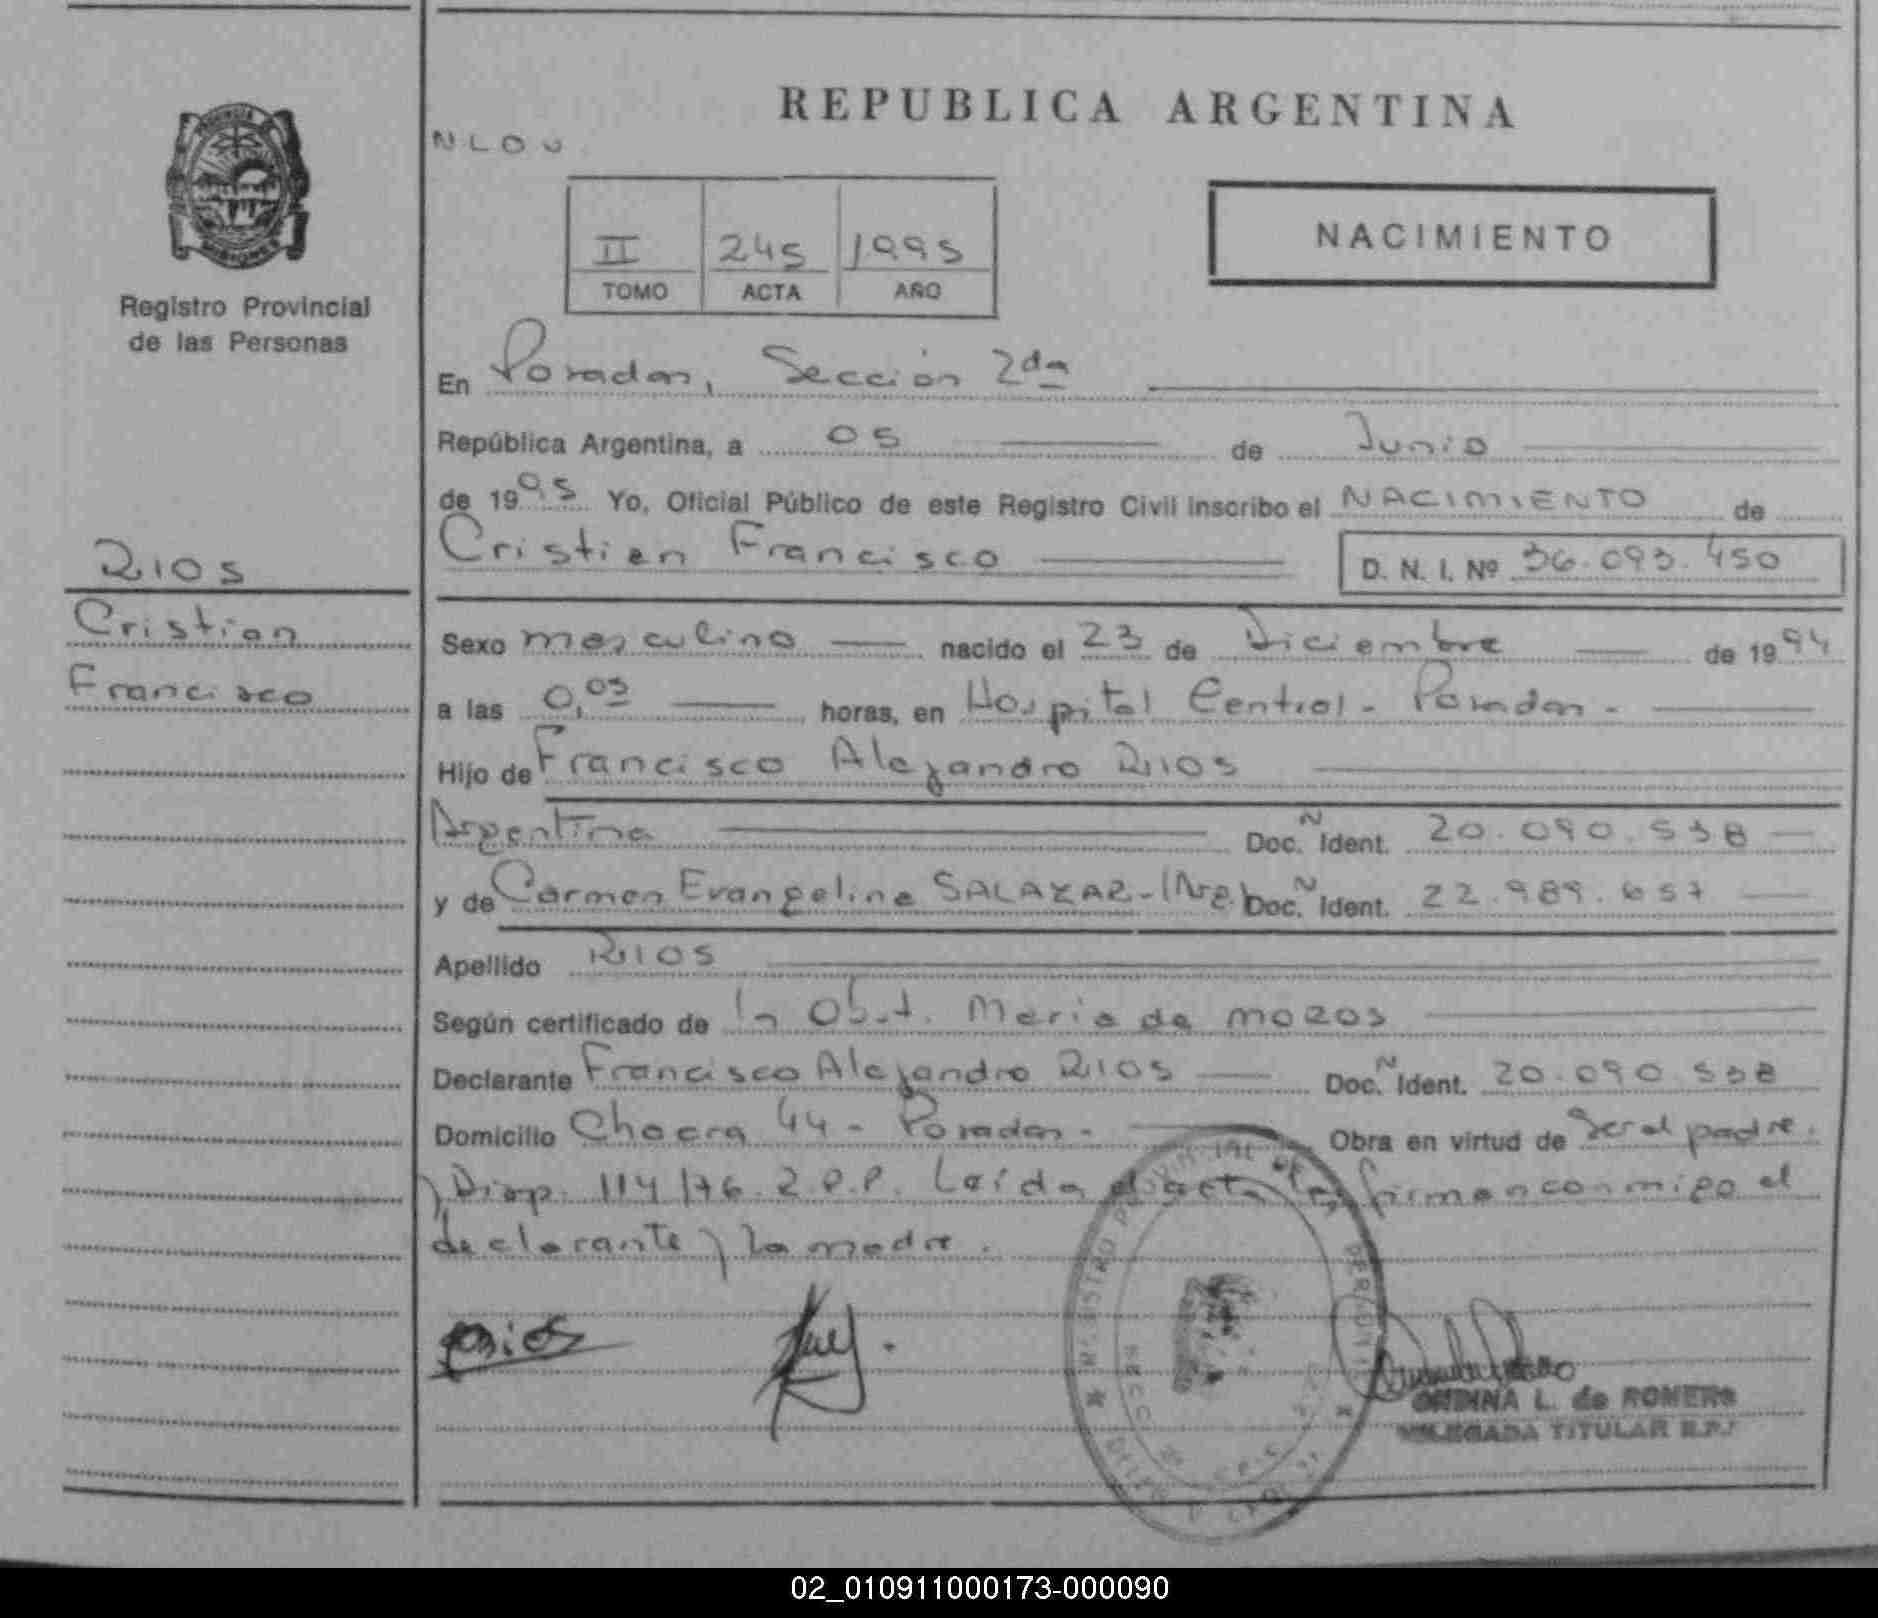 REPUBLICA ARGENTINA
N L O U
NACIMIENTO
II 245 1995
TOMO ACTA AÑO
Registro Provincial
de las Personas
En Posadas, Sección 2da
República Argentina, a 05 de Junio
de 1995 Yo, Oficial Público de este Registro Civil inscribo el NACIMIENTO de
Cristian Francisco D. N. I. Nº 36.093.450
RIOS
Cristian
Francisco
Sexo masculino nacido el 23 de Diciembre de 1994
a las 0,05 horas, en Hospital Central - Posadas -
Hijo de Francisco Alejandro RIOS
Argentina Doc. Ñ Ident. 20.090.538
y de Carmen Evangelina SALAZAR - Doc. Ñ Ident. 22.989.657
Apellido RIOS
Según certificado de la Obst. Maria de mozos
Declarante Francisco Alejandro RIOS Doc. Ñ Ident. 20.090.538
Domicilio Chacra 44 - Posadas - Obra en virtud de ser el padre.
y Disp. 114/76. R.P.P. Leída el acta la firman conmigo el
declarante y la madre.
Rios
REGISTRO PROVINCIAL DE LAS PERSONAS
ONDINA L. de ROMERO
DELEGADA TITULAR R.P.
02_010911000173-000090